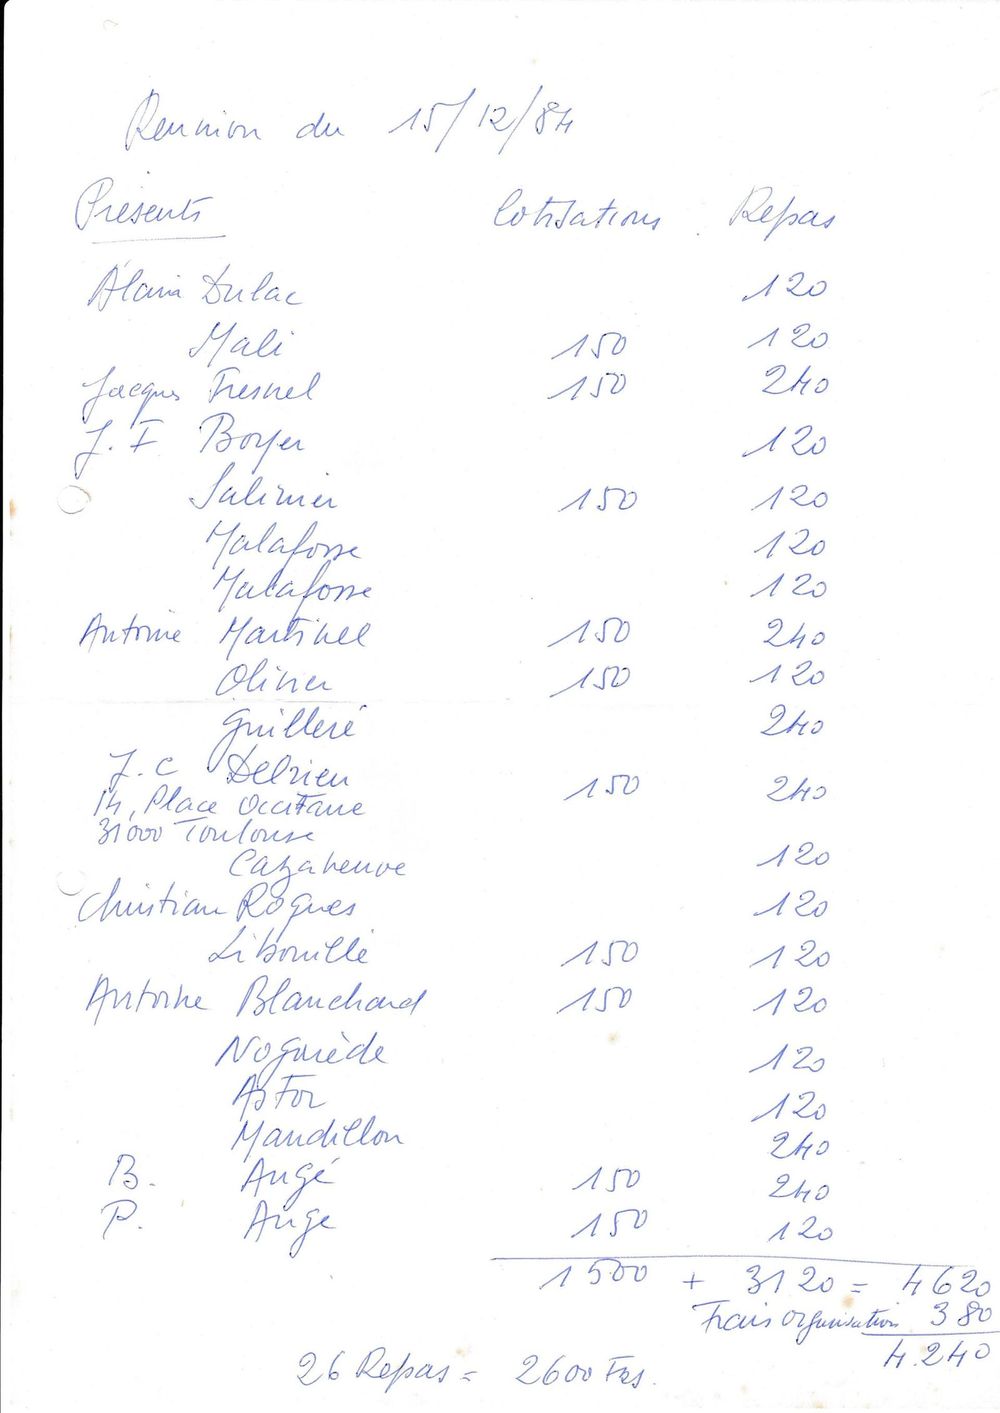 Reunion du 15/12/84
Présents Cotisations Repas
Alain Dulac 120
Mali 150 120
Jacques Fresnel 150 240
J. F Boyer 120
Salinier 150 120
Malafosse 120
Malafosse 120
Antoine Martinel 150 240
Olivier 150 120
Guilleré 240
J. C Delrieu 150 240
14, Place Occitane
31000 Toulouse
Cazaneuve 120
Christian Rogues 120
Libouille 150 120
Antoine Blanchard 150 120
Noguiède 120
Astor 120
Mandillon 240
B. Augé 150 240
P. Auge 150 120
1500 + 3120 = 4620
Frais organisation 380
4.240
26 Repas = 2600 Frs.